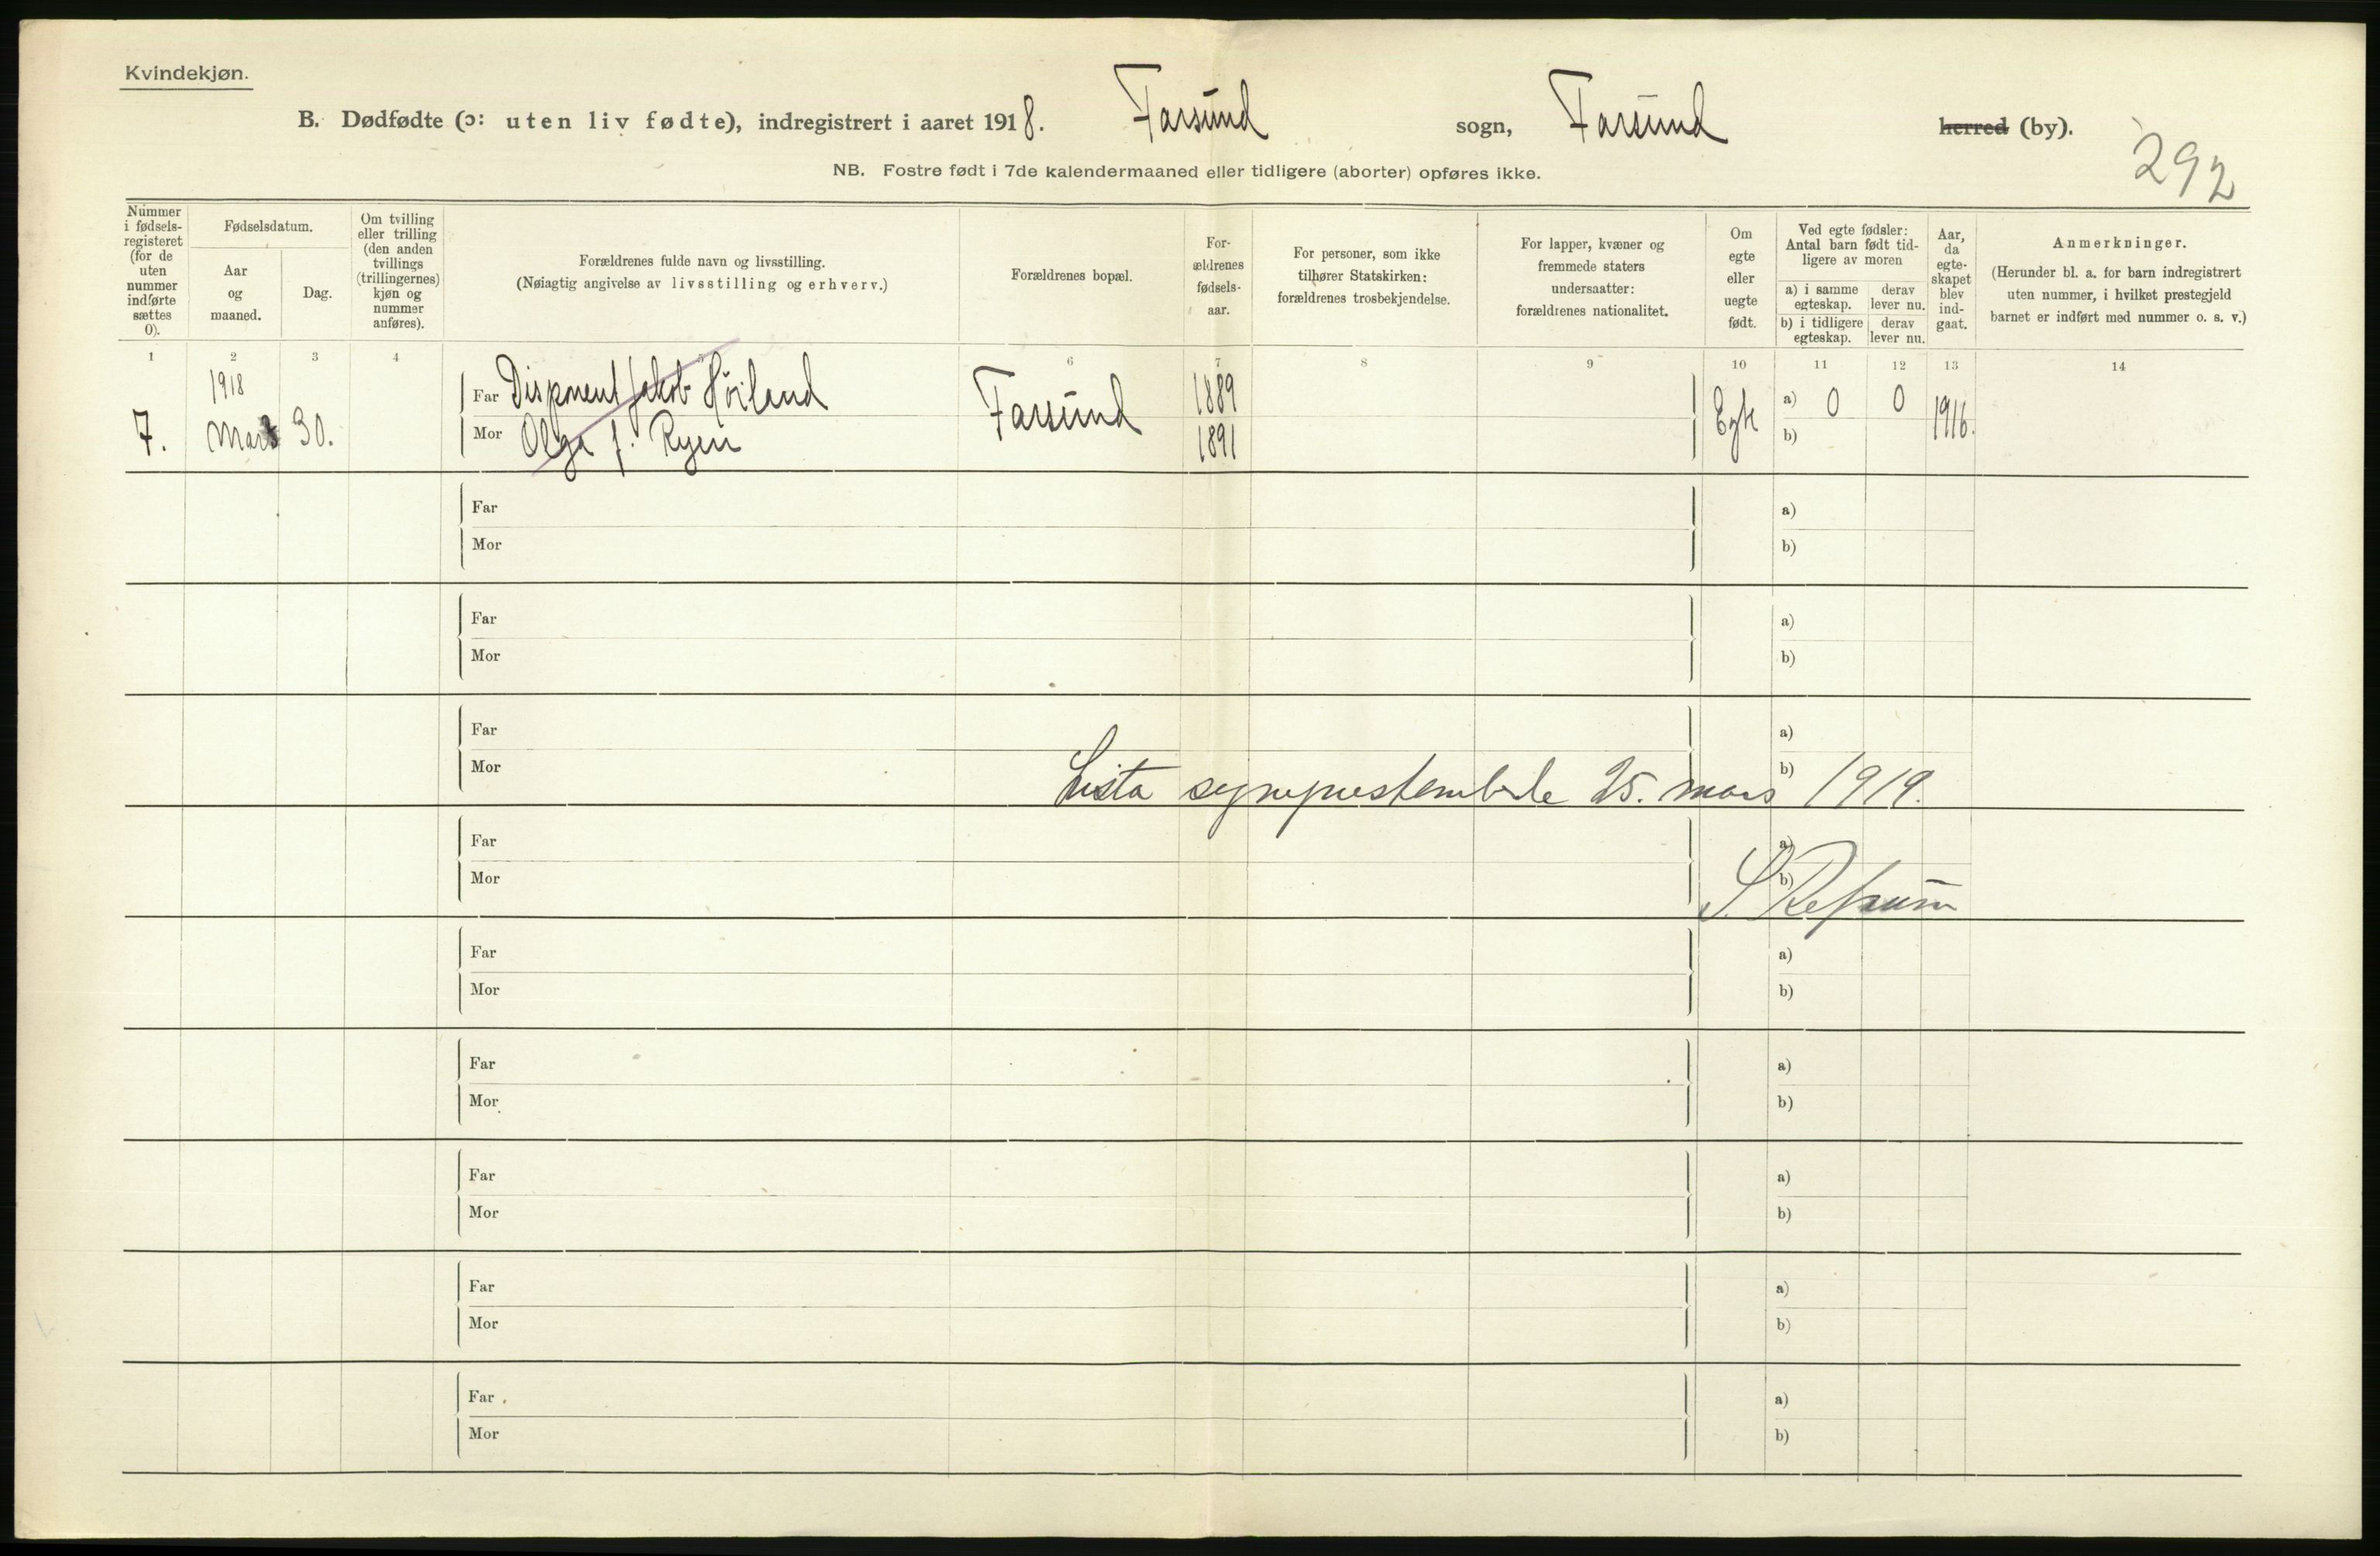 Kvindekjøn.
B. Dødfødte (ɔ: uten liv fødte), indregistrert i aaret 1918. Farsund sogn, Farsund herred (by).
292
NB. Fostre født i 7de kalendermaaned eller tidligere (aborter) opføres ikke.
Nummer i fødsels-registeret (for de uten nummer indførte sættes 0).
Fødselsdatum.
Aar og maaned.
Dag.
Om tvilling eller trilling (den anden tvillings (trillingernes) kjøn og nummer anføres).
Forældrenes fulde navn og livsstilling.
(Nøiagtig angivelse av livsstilling og erhverv.)
Forældrenes bopæl.
For-ældrenes fødsels-aar.
For personer, som ikke tilhører Statskirken: forældrenes trosbekjendelse.
For lapper, kvæner og fremmede staters undersaatter: forældrenes nationalitet.
Om egte eller uegte født.
Ved egte fødsler: Antal barn født tid-ligere av moren
a) i samme egteskap. derav lever nu.
b) i tidligere egteskap. derav lever nu.
Aar, da egte-skapet blev ind-gaat.
Anmerkninger.
(Herunder bl. a. for barn indregistrert uten nummer, i hvilket prestegjeld barnet er indført med nummer o. s. v.)
1 2 3 4 5 6 7 8 9 10 11 12 13 14
1918
7. Mars 30.
Far Disponent Jakob Høiland Farsund 1889 Egte a) 0 0 1916.
Mor Olga f. Ryen 1891 b)
Far a)
Mor b)
Far a)
Mor b)
Far a)
Mor b)
Lista sogneprestembede 25. mars 1919.
Far a)
Mor b)
Far a)
Mor b)
Far a)
Mor b)
Far a)
Mor b)
Far a)
Mor b)
Far a)
Mor b)